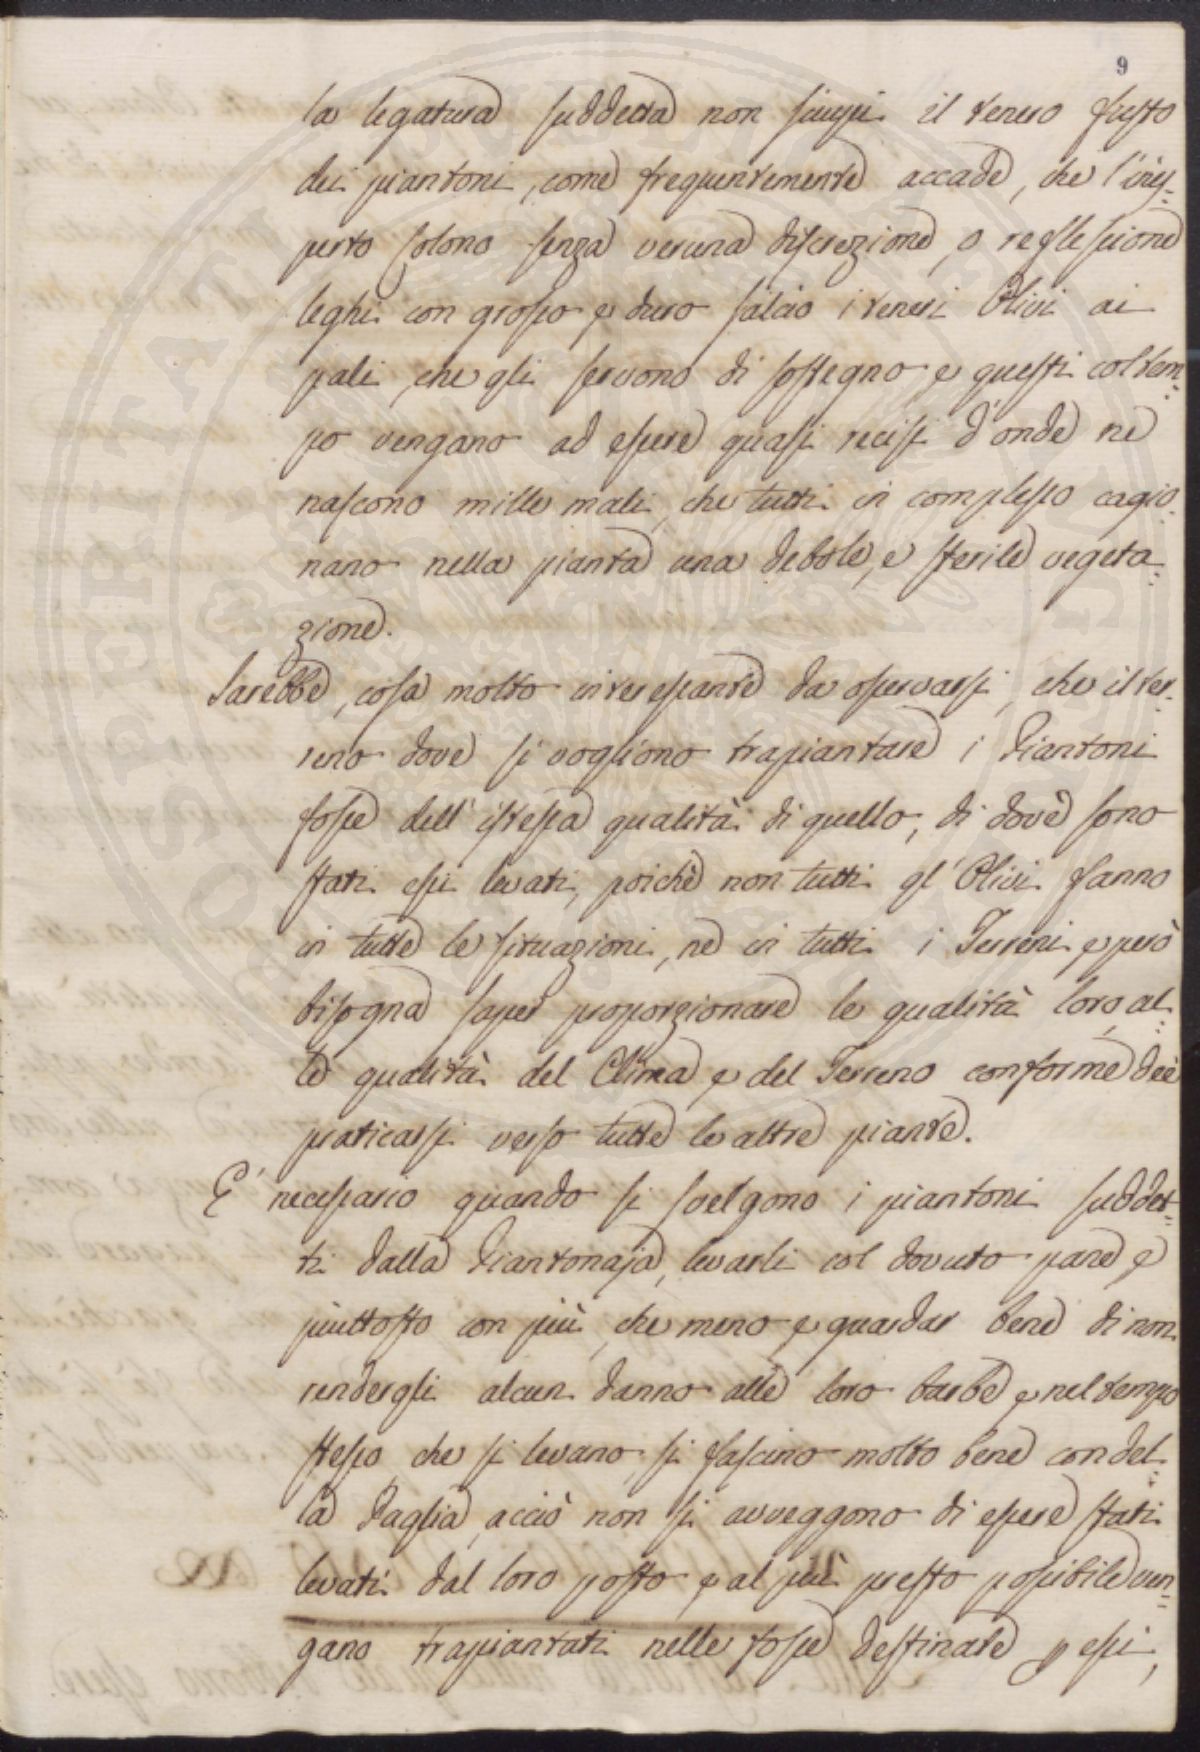 9
la legatura suddetta non sciupi il tenero fusto
dei piantoni, come frequentemente accade, che l'ines-
perto Colono senza veruna discrezione, o reflessione
leghi con grosso e duro salcio i teneri Olivi ai
pali, che gli servono di sostegno e questi col tem-
po vengano ad essere quasi recisi d'onde ne
nascono mille mali, che tutti in complesso cagio-
nano nella pianta una debole, e sterile vegeta-
zione.
Sarebbe, cosa molto interessante da osservarsi, che il ter-
reno dove si vogliono trapiantare i Piantoni
fosse dell'istessa qualità di quello, di dove sono
stati essi levati, poichè non tutti gl'Olivi fanno
in tutte le situazioni, ne in tutti i Terreni e però
bisogna saper proporzionare le qualità loro al-
le qualità del Clima e del Terreno conforme deè
praticarsi verso tutte le altre piante.
E' necessario quando si svelgono i piantoni suddet-
ti dalla Piantonaja, levarli col dovuto pane e
piuttosto con più, che meno e guardar bene di non
rendergli alcun danno alle loro barbe e nel tempo
stesso che si levano, si fascino molto bene con del-
la Paglia, acciò non si avveggono di essere stati
levati dal loro posto e al più presto possibile ven-
gano trapiantati nelle fosse destinate p essi,
OSPERITATI PUBLICAE AUGENDAE